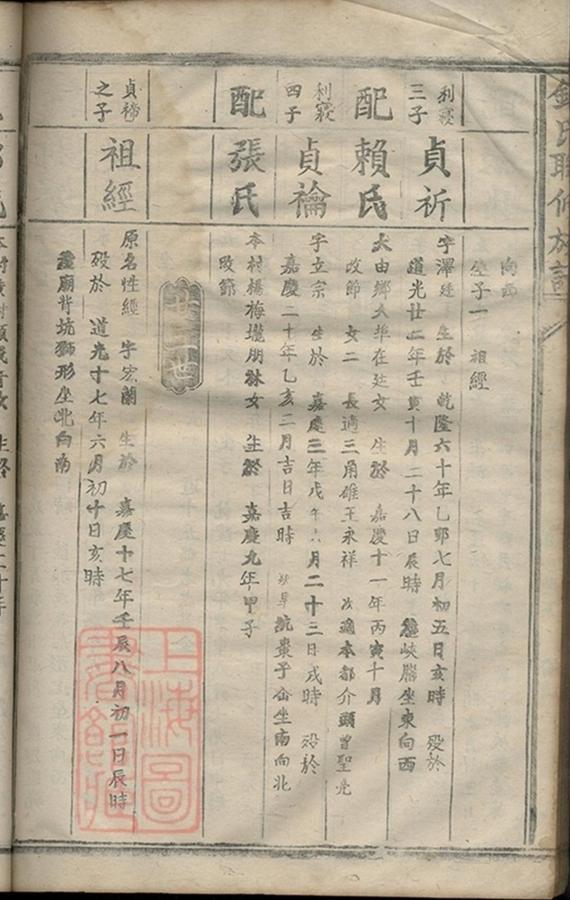 向西
坐子一 祖經
利
三子
貞祈
字澤廷 生於 乾隆六十年乙卯七月初五日亥時 殁於
道光廿二年壬寅十月二十八日辰時 坐東向西
配
賴氏
太由鄉大埠在廷女 生於 嘉慶十一年丙寅十月
改節 女二 長適三角雄王永祥 次適本都介頭曾聖亮
利
四子
貞禴
字立宗 生於 嘉慶三年戊午六月二十三日戌時 殁於
嘉慶二十年乙亥二月吉日吉時 坑棗子 坐南向北
配
張氏
本村楊梅壠朋林女 生於 嘉慶九年甲子
改節
廿二世
貞禘
之子
祖經
原名性經 字宏蘭 生於 嘉慶十七年壬辰八月初一日辰時
殁於 道光十七年六月初十日亥時
廟背坑獅形坐北向南
上海圖書館藏